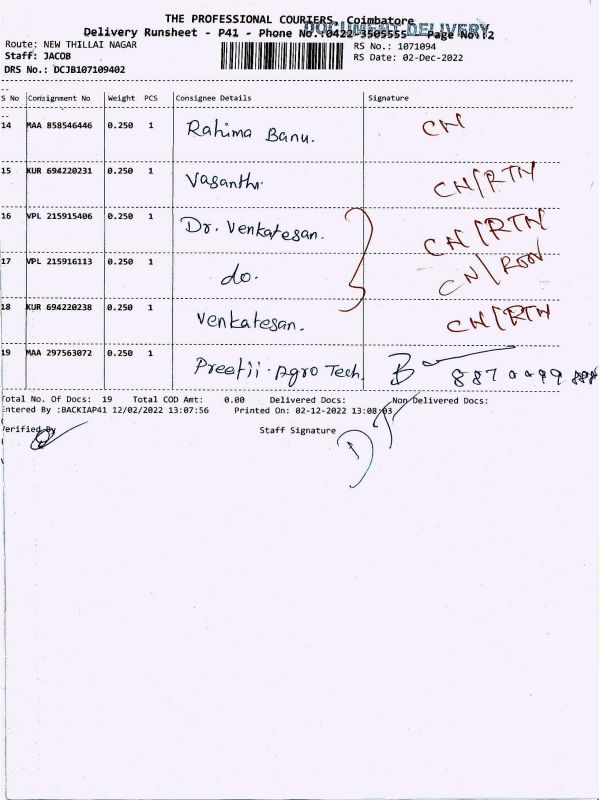 THE PROFESSIONAL COURIERS, Coimbatore
DOCUMENT DELIVERY
Delivery Runsheet - P41 - Phone No.:0422-3505555 Page No.:2
Route: NEW THILLAI NAGAR RS No.: 1071094
Staff: JACOB RS Date: 02-Dec-2022
DRS No.: DCJB107109402
S No Consignment No Weight PCS Consignee Details Signature
14 MAA 858546446 0.250 1 Rahima Banu. CN
15 KUR 694220231 0.250 1 Vasanthi. CN/RTN
16 VPL 215915406 0.250 1 Dr. Venkatesan. CN/RTN
17 VPL 215916113 0.250 1 do. CN/
18 KUR 694220238 0.250 1 Venkatesan. CN/RTN
19 MAA 297563072 0.250 1 Preetii Agro Tech.
Total No. Of Docs: 19 Total COD Amt: 0.00 Delivered Docs: Non Delivered Docs:
Entered By :BACKIAP41 12/02/2022 13:07:56 Printed On: 02-12-2022 13:08:03
Verified By Staff Signature